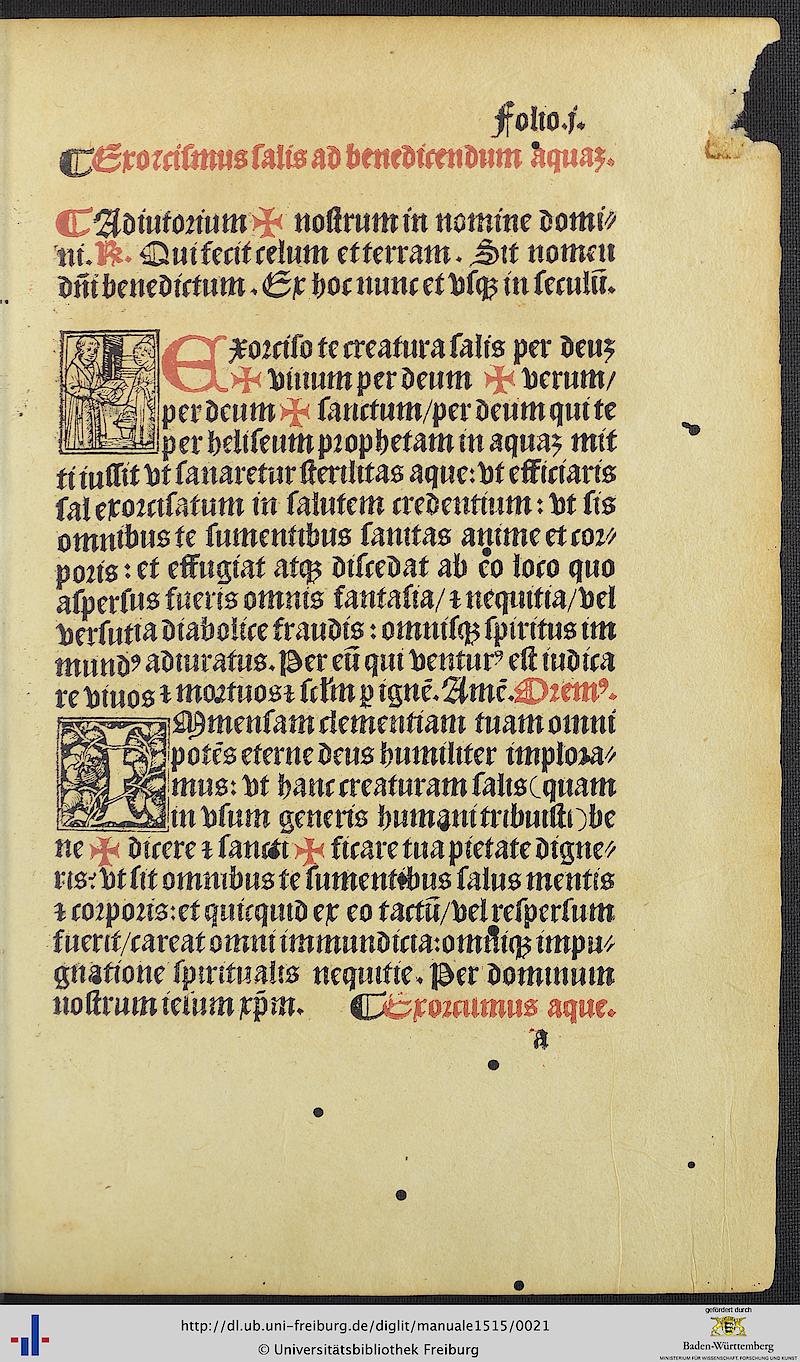 Folio.j.
¶Exorcismus salis ad benedicendum aquaʒ.
¶ Adiutorium ✠ nostrum in nomine domi⸗
ni. ℟. Qui fecit celum et terram. Sit nomen
dñi benedictum. Ex hoc nunc et vsqʒ in seculū.
Exorciso te creatura salis per deuʒ
✠ viuum per deum ✠ verum/
per deum ✠ sanctum/per deum qui te
per heliseum prophetam in aquaʒ mit
ti iussit vt sanaretur sterilitas aque: vt efficiaris
sal exorcisatum in salutem credentium: vt sis
omnibus te sumentibus sanitas anime et cor⸗
poris: et effugiat atqʒ discedat ab eo loco quo
aspersus fueris omnis fantasia/ ⁊ nequitia/vel
versutia diabolice fraudis: omnisqʒ spiritus im
mundꝰ adiuratus. Per eū qui venturꝰ est iudica
re viuos ⁊ mortuos ⁊ sclm ꝑ ignē. Amē. Oremꝰ.
IMmensam clementiam tuam omni
potēs eterne deus humiliter implora⸗
mus: vt hanc creaturam salis (quam
in vsum generis humani tribuisti) be
ne ✠ dicere ⁊ sancti ✠ ficare tua pietate digne⸗
ris: vt sit omnibus te sumentibus salus mentis
⁊ corporis: et quicquid ex eo tactū/vel respersum
fuerit/careat omni immundicia: omniqʒ impu⸗
gnatione spiritualis nequitie. Per dominum
nostrum iesum xp̄m. ¶Exorcismus aque.
a
http://dl.ub.uni-freiburg.de/diglit/manuale1515/0021
© Universitätsbibliothek Freiburg
gefördert durch
Baden-Württemberg
MINISTERIUM FÜR WISSENSCHAFT, FORSCHUNG UND KUNST